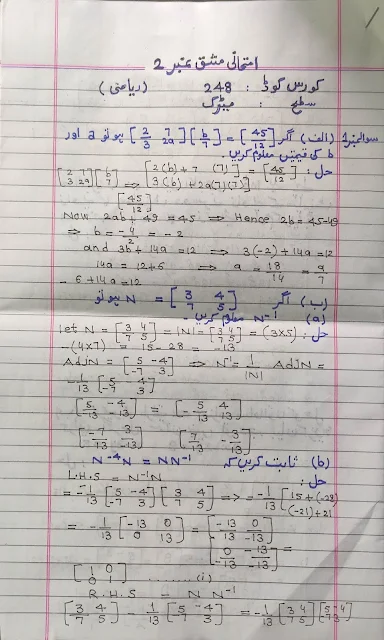 امتحانی مشق نمبر 2
کورس کوڈ : 248 (ریاضی)
سطح : میٹرک
سوال نمبر 1 (الف) اگر [2 7 / 3 2a][b / 7] = [45 / 12] ہو تو a اور
b کی قیمتیں معلوم کریں.
حل : [2 7 / 3 2a][b / 7] ⇒ [2(b) + 7 (7) / 3(b) + 2a(7)(7)] = [45 / 12]
[45 / 12]
Now 2ab + 49 = 45 ⇒ Hence 2b = 45-49
⇒ b = -4/2 = -2
and 3b + 14a = 12 ⇒ 3(-2) + 14a = 12
14a = 12+6 ⇒ a = 18/14 = 9/7
- 6 + 14a = 12
(ب) اگر N = [3 4 / 7 5] ہو تو
(a) N⁻¹ معلوم کریں -
حل : let N = [3 4 / 7 5] = |N| = [3 4 / 7 5] = (3x5)
-(4x7) = 15 - 28 = -13
AdjN = [5 -4 / -7 3] ⇒ N¹ = 1/|N| AdjN =
-1/13 [5 -4 / -7 3]
[5/13 -4/-13] = [-5/13 4/13]
[-7/13 3/-13] [7/13 -3/13]
(b) ثابت کریں کہ N⁻⁴N = NN⁻¹
حل :
L.H.S = N⁻¹N
= -1/13 [5 -4 / -7 3] [3 4 / 7 5] => = -1/13 [15 + (-28) / (-21) + 21
= -1/13 [-13 0 / 0 13] = [-13/-13 0/-13]
[0/-13 -13/-13] =
[1 0 / 0 1] ........(i)
R.H.S = N N⁻¹
[3 4 / 7 5] - 1/13 [5 -4 / -7 3] = -1/13 [3 4 / 7 5] [5 -4 / 7 3]